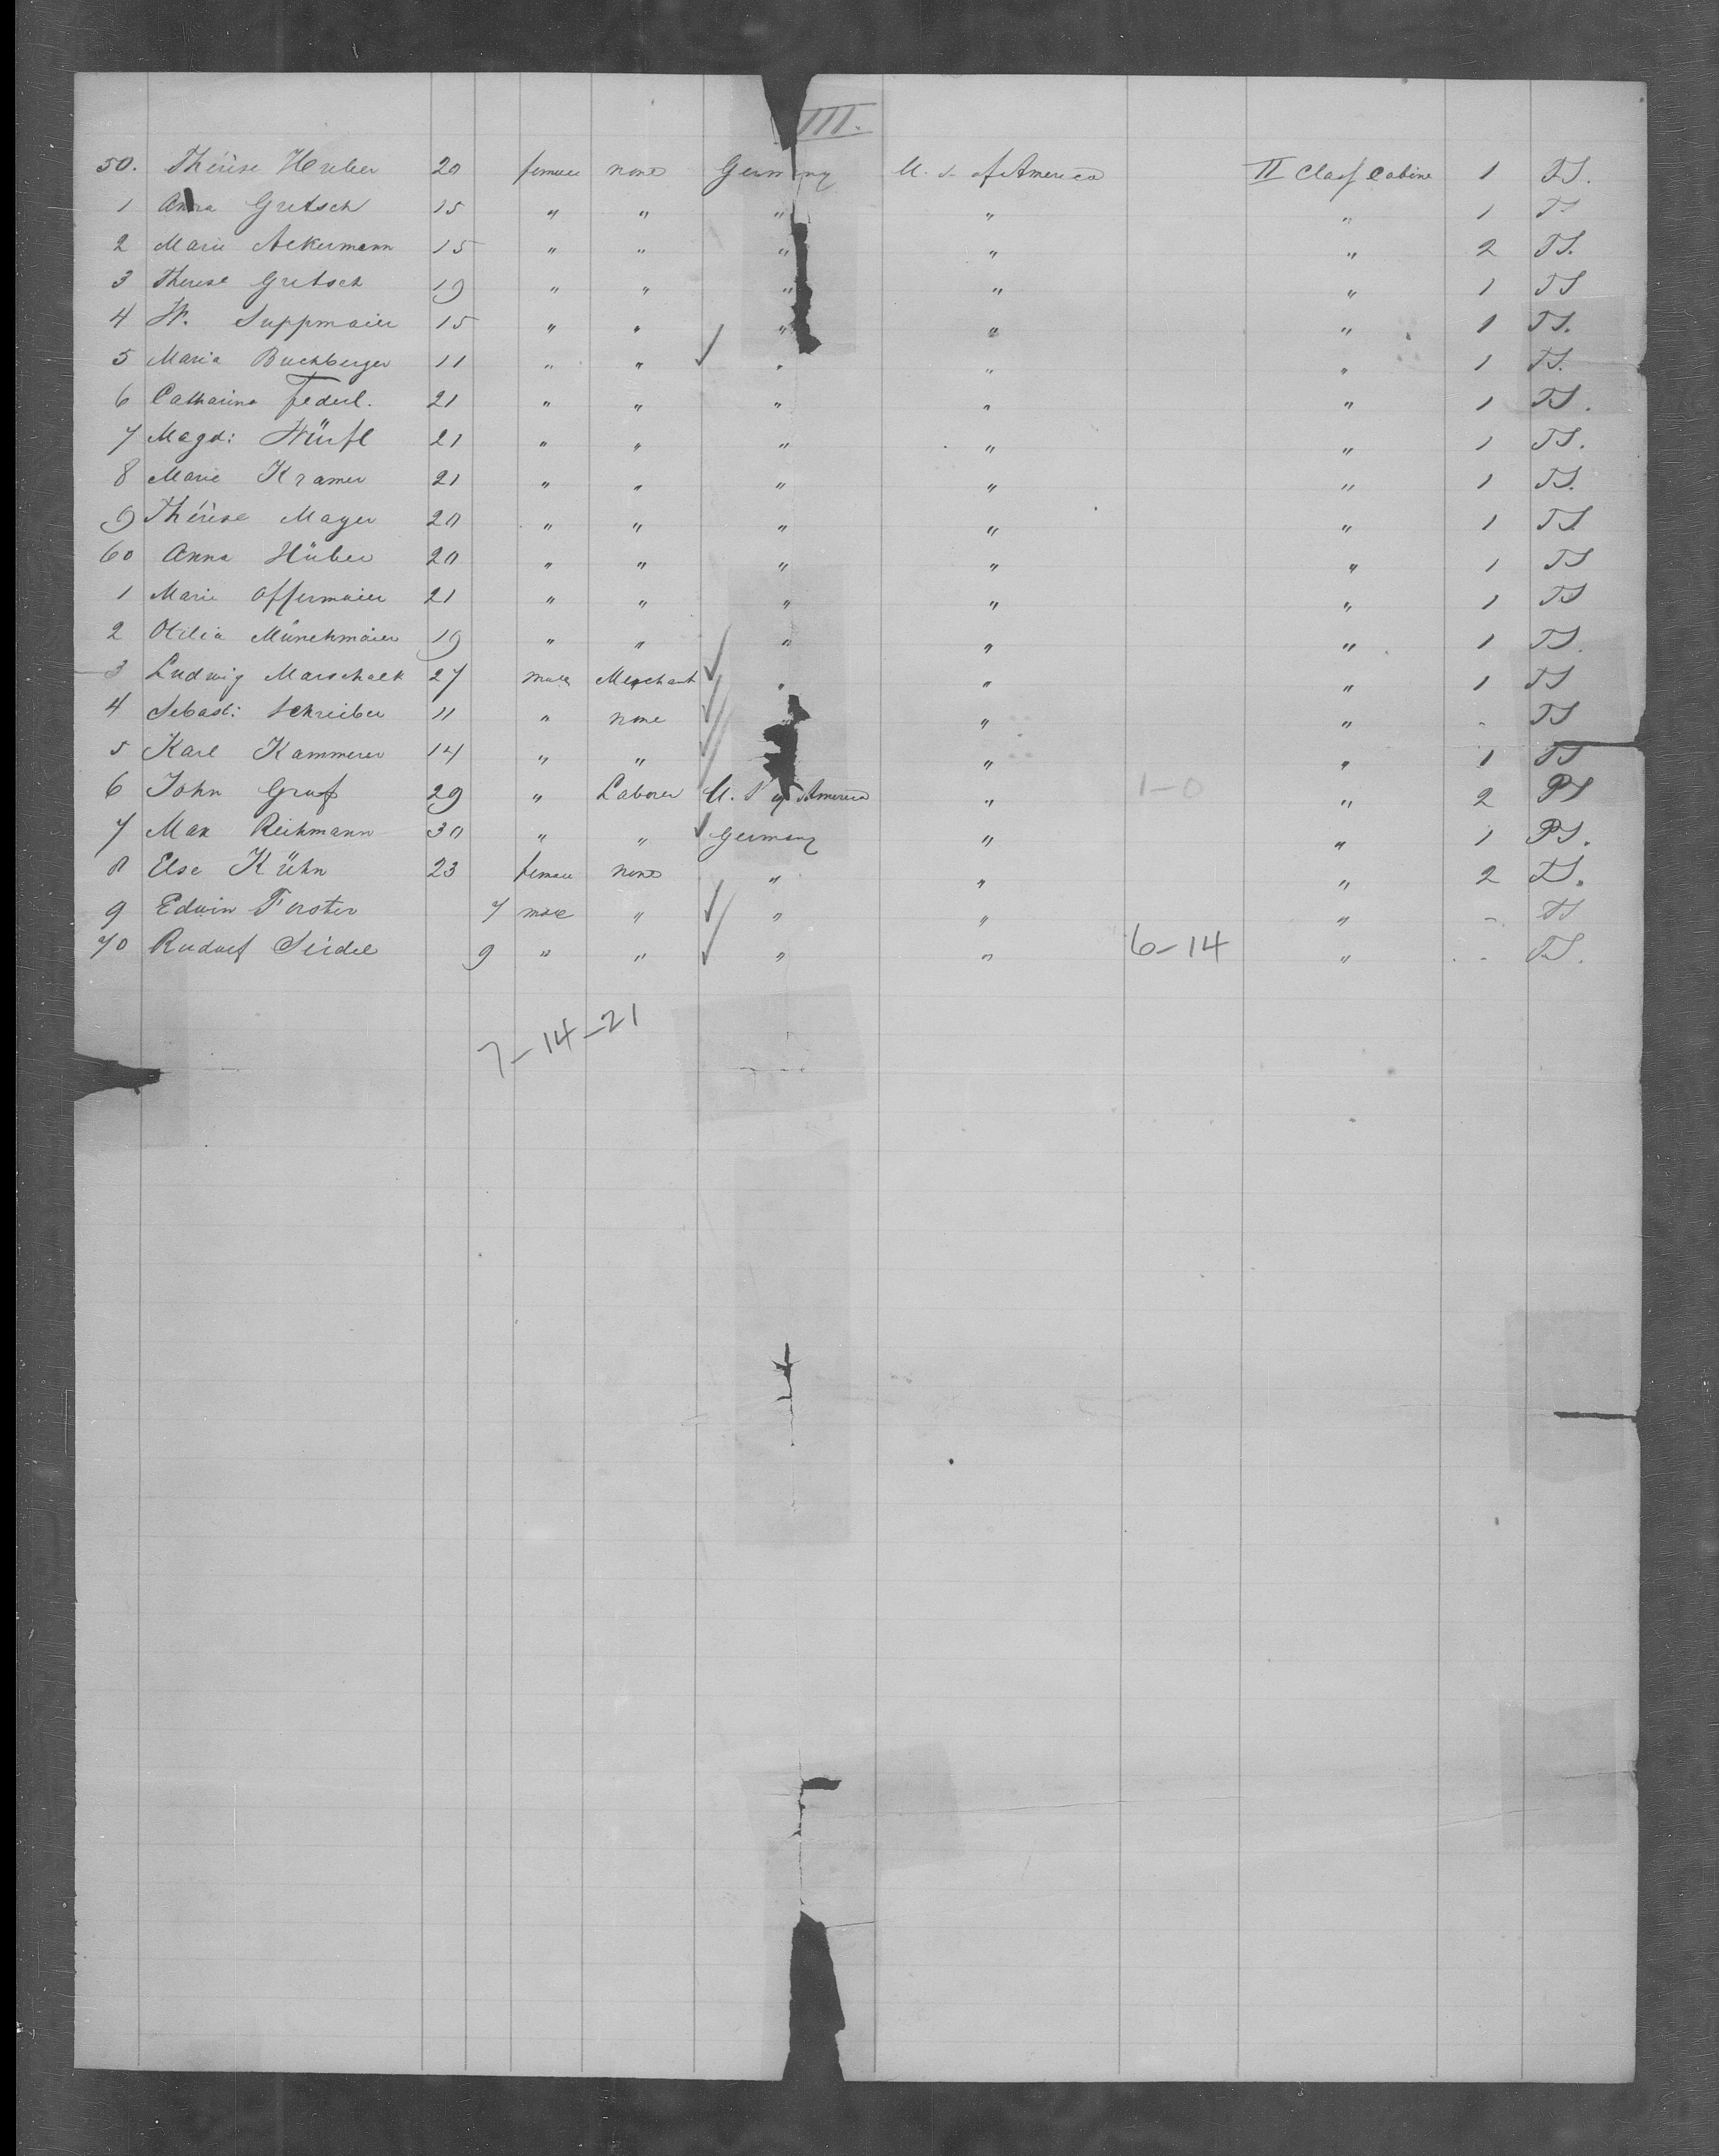 III.
50. Thérèse Huber 20 female none Germany U. S. of America II Class Cabine 1 T.S.
1 Anna Gretsch 15 " " " " " 1 TS
2 Marie Ackermann 15 " " " " " 2 TS.
3 Therese Gretsch 19 " " " " " 1 TS
4 W. Suppmaier 15 " " " " " 1 TS.
5 Maria Buchberger 11 " " ✓ " " " 1 TS.
6 Catharina Federl. 21 " " " " " 1 TS.
7 Magd: Würfl 21 " " " " " 1 TS.
8 Marie Kramer 21 " " " " " 1 TS.
9 Thérèse Mayer 20 " " " " " 1 TS
60 Anna Hüber 20 " " " " " 1 TS
1 Marie Offermaier 21 " " " " " 1 TS
2 Otilia Münchmaier 19 " " " " " 1 TS.
3 Ludwig Marschalk 27 male Merchant ✓ " " " 1 TS
4 Sebast: Schreiber 11 " none ✓ " " " - TS
5 Karl Kammerer 14 " " ✓ " " 1 TS
6 John Graf 29 " Laborer U. S of America " 1-0 " 2 PS
7 Max Reihmann 30 " " ✓ Germany " " 1 PS.
8 Else Kühn 23 female none " " " 2 TS.
9 Edwin Forster 7 male " ✓ " " " - TS
70 Rudolf Seidel 9 " " ✓ " " 6-14 " - T.S.
7-14-21